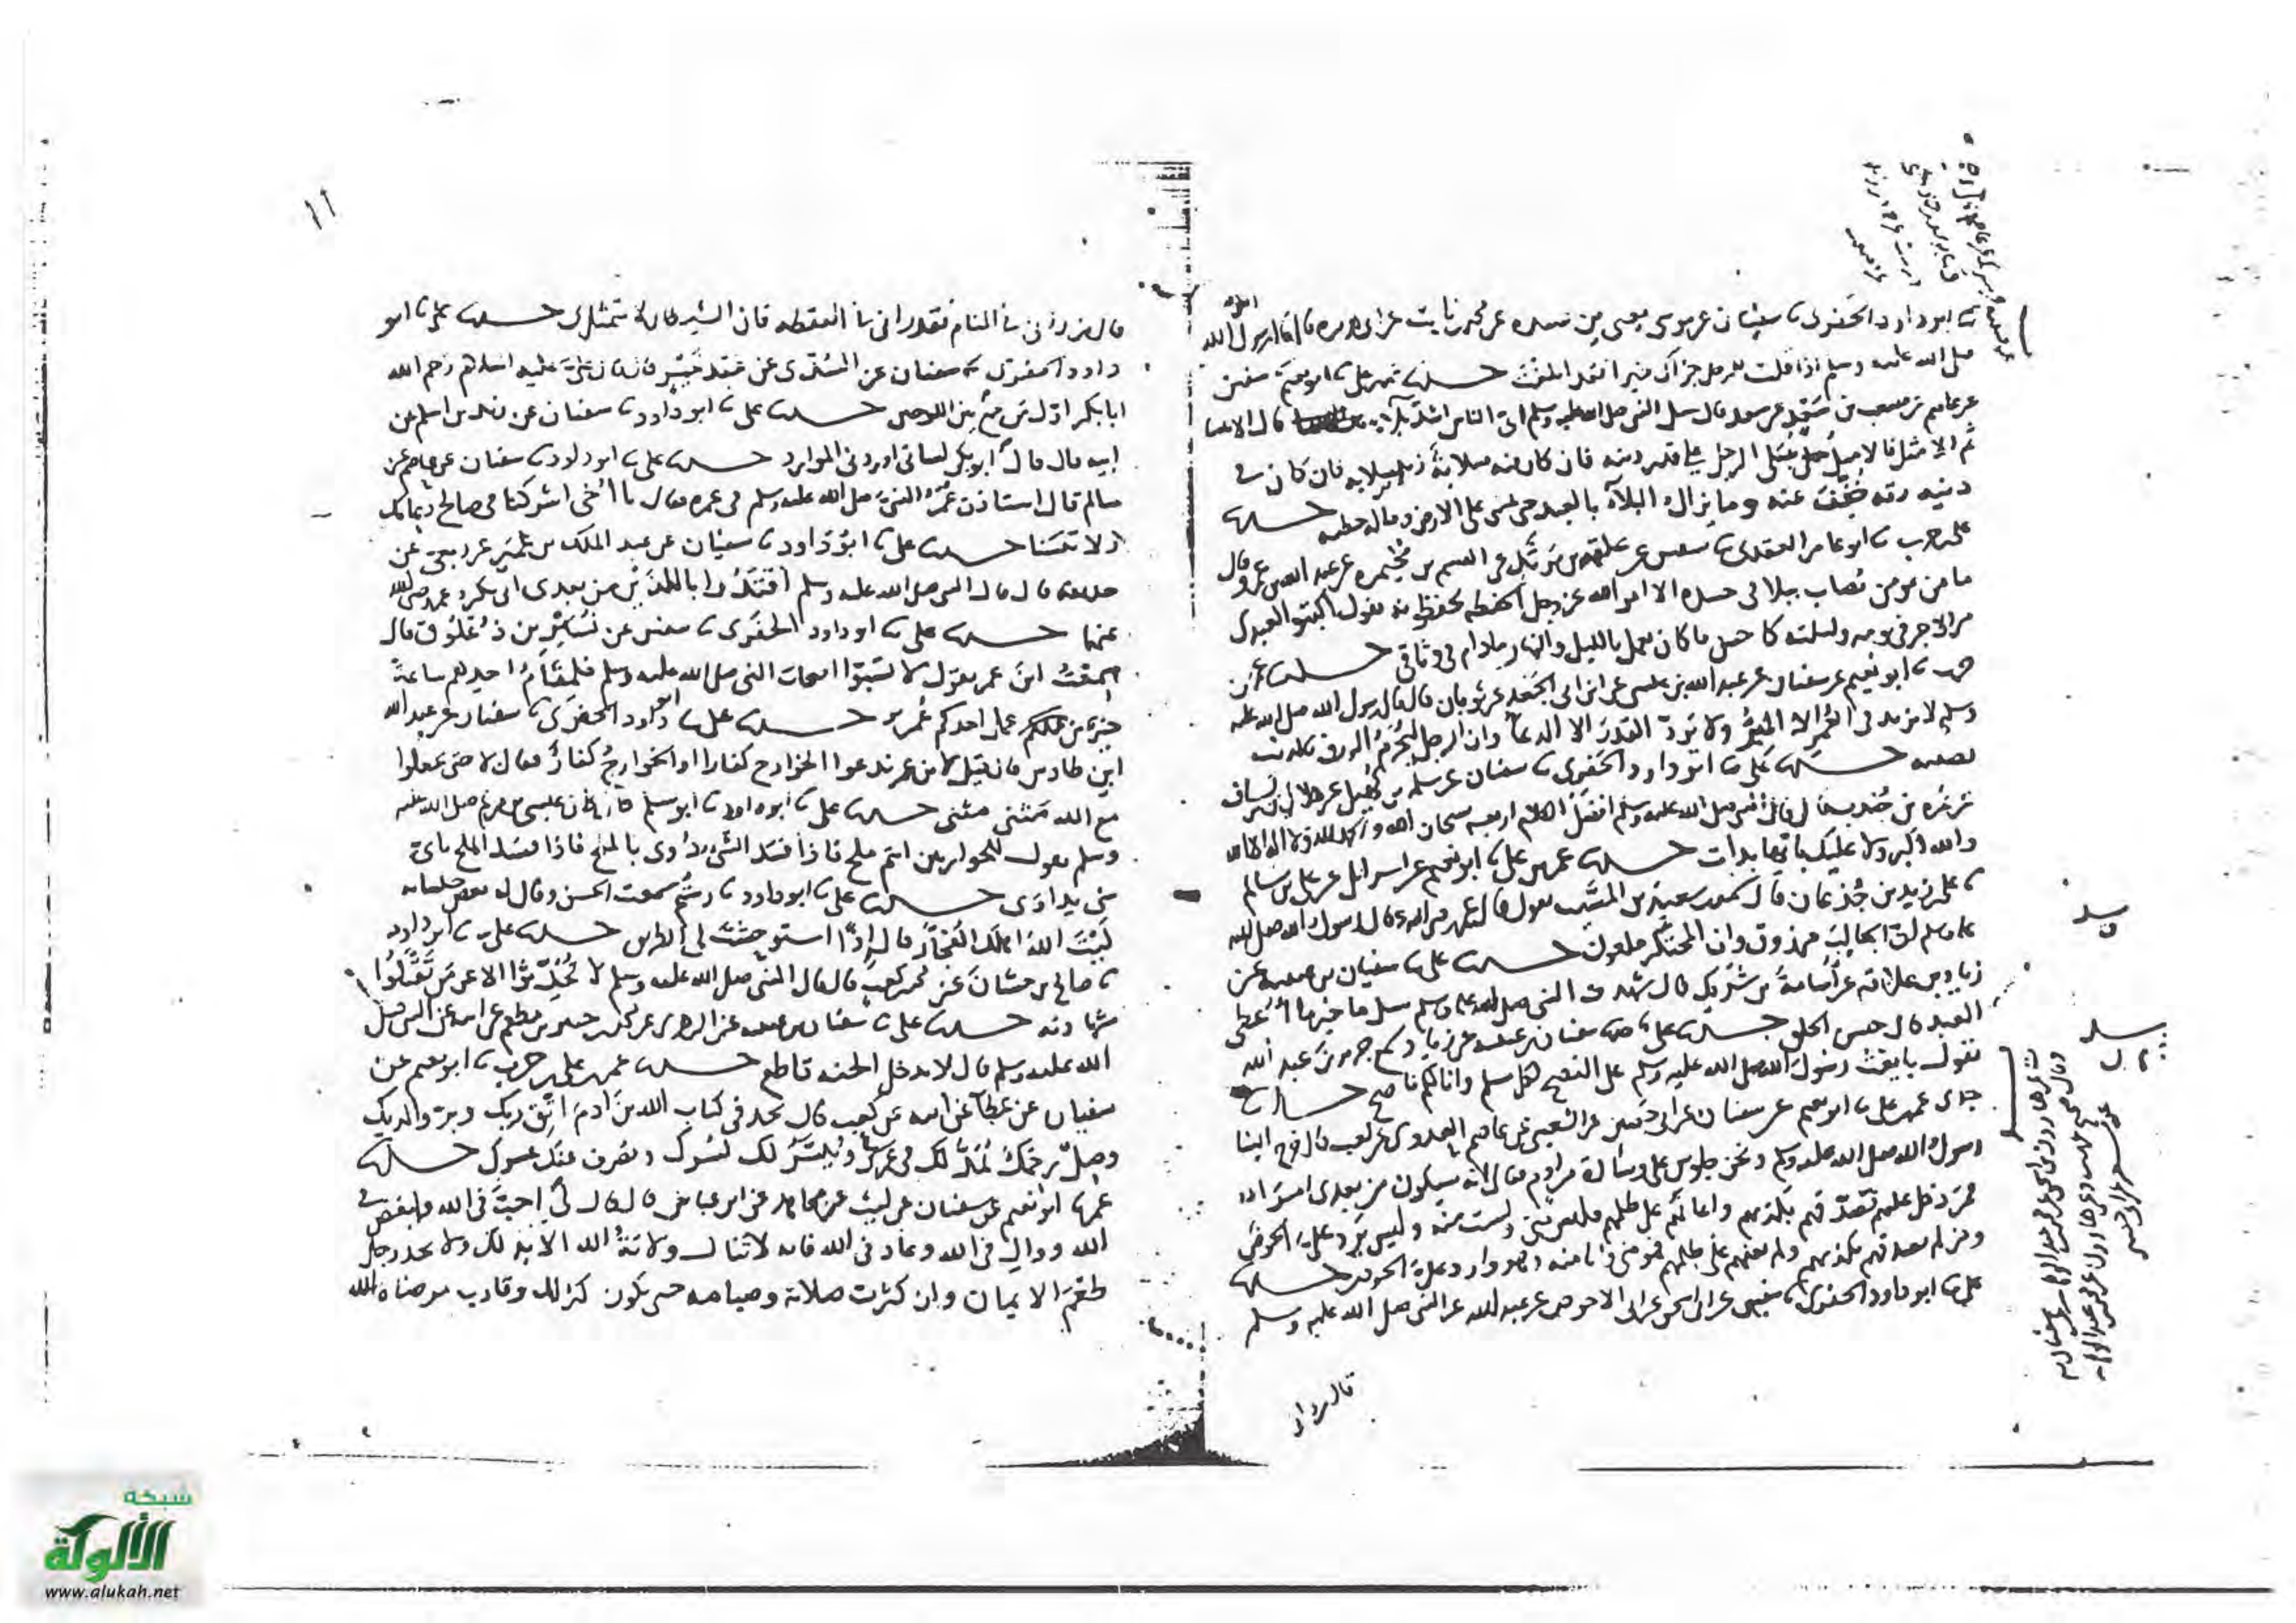 ثنا ابو داود الحفرى ثنا سفيان عن موسى يعنى بن عبيده عن محمد بن ثابت عن ابى هريره قال قال رسول الله
صلى الله عليه وسلم اذا قلت للرجل جزاك الله خيرا فقد ابلغت حدثنا على ثنا ابو نعيم ثنا سفين
عن عاصم عن مصعب بن سعد عن سعد قال سيل النبى صلى الله عليه وسلم اى الناس اشد بلا قال الانبيا
ثم الامثل فالامثل يبتلى الرجل على قدر دينه فان كان فى دينه صلابة زيد فى بلايه فان كان فى
دينه رقه خفف عنه وما يزال البلآء بالعبد حتى يمشى على الارض وماله خطيه حدثنا
على بن حرب ثنا ابو عامر العقدى ثنا سفين عن علقمه بن مرثد عن القسم بن مخيمره عن عبد الله بن عمرو قال
ما من مومن يصاب ببلا فى جسده الا امر الله عز وجل الحفظه يقول اكتبوا لعبدى
من الاجر فى يومه وليلته كا حسن ما كان يعمل بالليل والنهار مادام فى وثاقى حدثنا على بن
حرب ثنا ابو نعيم عن سفيان عن عبد الله بن عيسى عن ابن ابى الجعد عن ثوبان قال قال رسول الله صلى الله عليه
وسلم لا يزيد فى العمر الا البر ولا يرد القدر الا الدعآ وان الرجل ليحرم الرزق بالذنب
يصيبه حدثنا على ثنا ابو داود الحفرى ثنا سفيان عن سلمه بن كهيل عن هلال بن يساف
عن سمره بن جندب قال قال النبى صلى الله عليه وسلم افضل الكلام اربعه سبحان الله والحمد لله ولا اله الا الله
والله اكبر ولا عليك بايها بدات حدثنا على ثنا ابو نعيم عن اسرائيل عن على بن سالم
ثنا على بن زيد بن جدعان قال سمعت سعيد بن المسيب يقول قال رسول الله صلى الله
عليه وسلم ان الجالب مرزوق وان المحتكر ملعون حدثنا على ثنا سفيان بن عيينه عن
زياد بن علاقه عن اسامة بن شريك قال شهدت النبى صلى الله عليه وسلم سيل ما خير ما اعطى
العبد قال حسن الخلق حدثنا على ثنا سفيان بن عيينه عن زياد سمع جرير بن عبد الله
يقول بايعت رسول الله صلى الله عليه وسلم على النصح لكل مسلم وانا لكم ناصح حدثنا
ثنا ابو نعيم عن سفيان عن ابى حصين عن الشعبى عن عاصم العدوى عن كعب قال خرج الينا
رسول الله صلى الله عليه وسلم ونحن جلوس على وسادة من ادم فقال انه سيكون من بعدى امرا
فمن دخل عليهم فصدقهم بكذبهم واعانهم على ظلمهم فليس منى ولست منه وليس يرد على الحوض
ومن لم يصدقهم بكذبهم ولم يعنهم على ظلمهم فهو منى وانا منه وهو وارد على الحوض حدثنا
على ثنا ابو داود الحفرى ثنا سفين عن ابى اسحق عن ابى الاحوص عن عبد الله عن النبى صلى الله عليه وسلم
١١
قال من رانى فى المنام فقد رانى فى اليقظه فان الشيطان لا يتمثل بى حدثنا على ثنا ابو
داود الحفرى ثنا سفيان عن السدى عن عبد خير قال قال على عليه السلام رحم الله
ابا بكر اول من جمع بين اللوحين حدثنا على ثنا ابو داود ثنا سفيان عن زيد بن اسلم عن
ابيه قال قال ابو بكر لسانى اوردنى الموارد حدثنا على ثنا ابو داود ثنا سفيان عن عاصم عن
سالم قال استاذن عمر النبى صلى الله عليه وسلم فى عمره فقال يا اخى اشركنا فى صالح دعايك
ولا تنسنا حدثنا على ثنا ابو داود ثنا سفيان عن عبد الملك بن عمير عن ربعى عن
حذيفه قال قال النبى صلى الله عليه وسلم اقتدوا باللذين من بعدى ابى بكر وعمر رضى الله
عنهما حدثنا على ثنا ابو داود الحفرى ثنا سفين عن نسير بن ذعلوق قال
سمعت ابن عمر يقول لا تسبوا اصحاب النبى صلى الله عليه وسلم فلمقام احدهم ساعة
خير من عمل احدكم عمره حدثنا على ثنا ابو داود الحفرى ثنا سفيان عن عبد الله
ابن طاوس قال قيل لابن عمر ندعوا الخوارج كفارا او الخوارج كفار فقال لا حتى يجعلوا
مع الله مثنى مثنى حدثنا على ثنا ابو داود ثنا ابو سلم قال كان عيسى بن مريم صلى الله عليه
وسلم يقول للحواريين انتم ملح فاذا فسد الشى يداوى بالملح فاذا فسد الملح باى
شى يداوى حدثنا على ثنا ابو داود ثنا سمعت الحسن وقال له بعض جلسايه
ليت الله اهلك الفجار قال اذا استوحشت فى الطرق حدثنا على ثنا ابو داود
ثنا صالح بن حسان عن محمد بن كعب قال قال النبى صلى الله عليه وسلم لا تحدثوا الا عن من تقبلوا
شهادته حدثنا على ثنا سفيان بن عيينه عن الزهرى عن محمد بن جبير بن مطعم عن ابيه عن النبى صلى
الله عليه وسلم قال لا يدخل الجنه قاطع حدثنا على بن حرب ثنا ابو نعيم عن
سفيان عن عطآ عن ابيه عن كعب قال نجد فى كتاب الله بن ادم اتق ربك وبر والديك
وصل رحمك نمد لك فى عمرك ونيسر لك يسرك ونصرف عنك عسرك حدثنا
ثنا ابو نعيم عن سفيان عن ليث عن مجاهد عن ابن عباس قال قال لى احب فى الله وابغض فى
الله ووال فى الله وعاد فى الله فانه لا تنال ولاية الله الا بذلك ولا يجد رجل
طعم الايمان وان كثرت صلاته وصيامه حتى يكون كذلك
شبكة
الألوكة
www.alukah.net